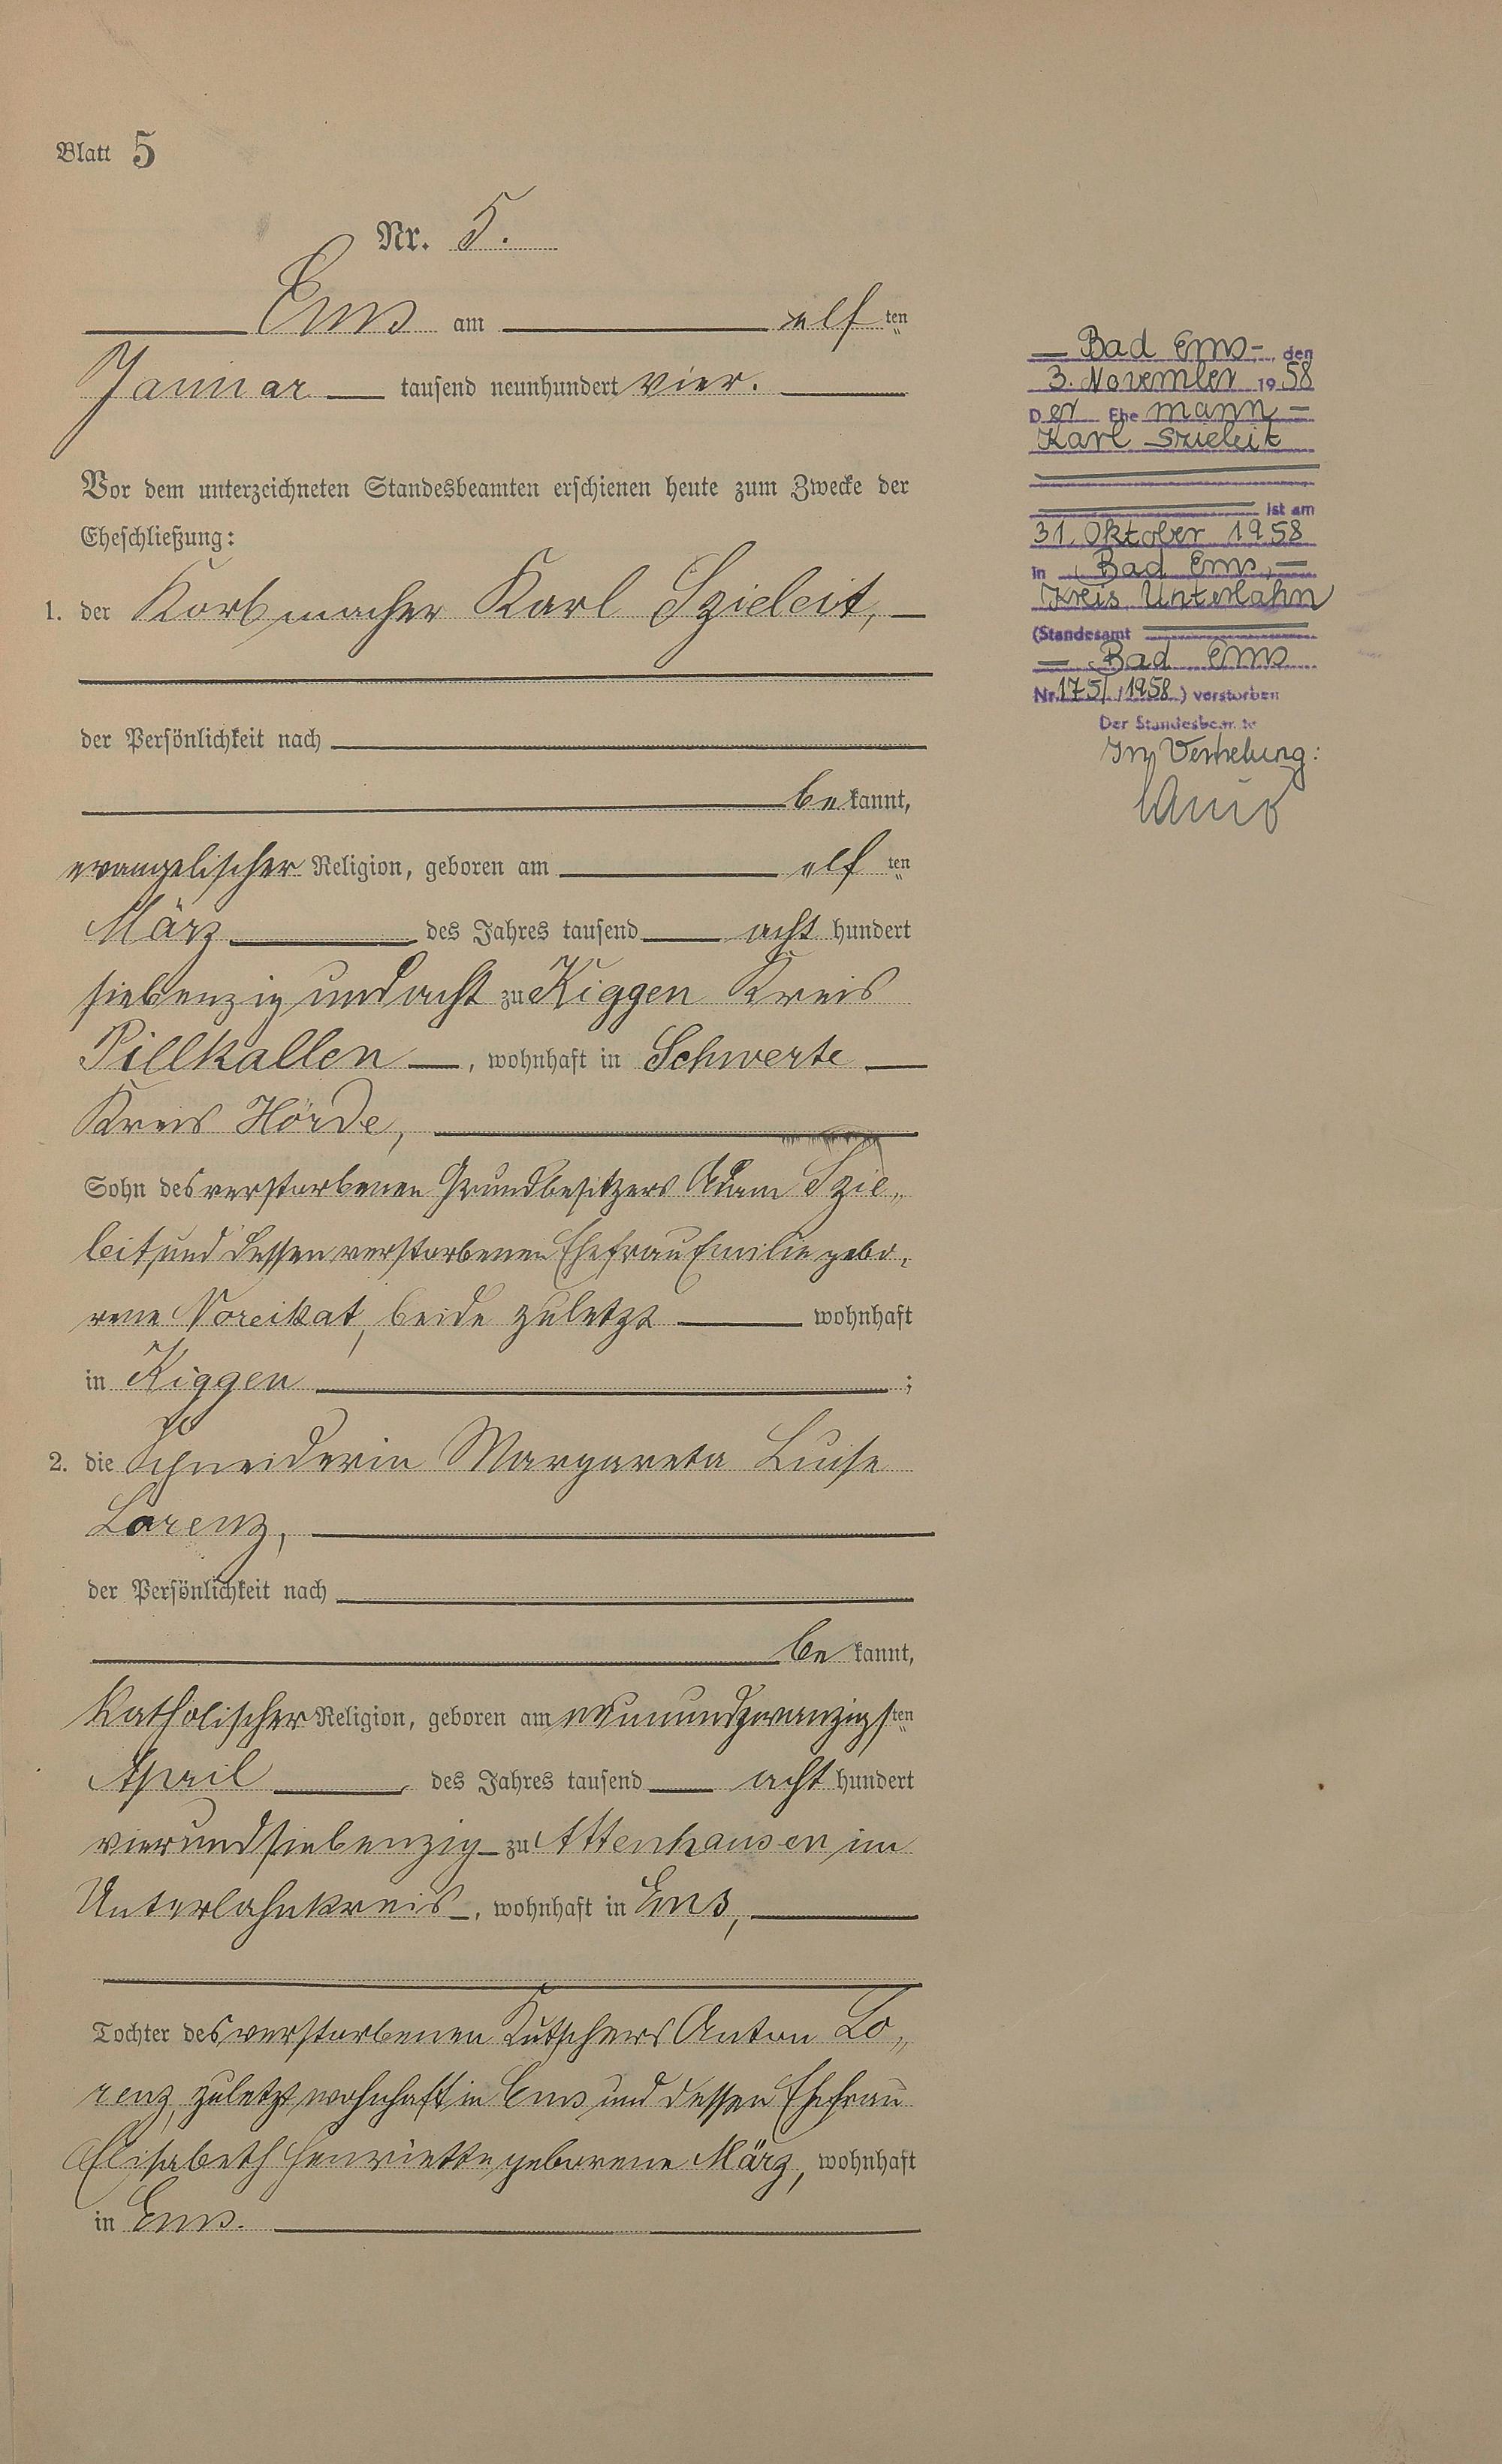 Blatt 5
Nr. 5.
Ems am elf ten
Januar tausend neunhundert vier.
Vor dem unterzeichneten Standesbeamten erschienen heute zum Zwecke der
Eheschließung:
1. der Korbmacher Karl Szieleit,
der Persönlichkeit nach
bekannt,
evangelischer Religion, geboren am elf ten
März des Jahres tausend acht hundert
siebenzig und acht zu Kiggen Kreis
Pillkallen, wohnhaft in Schwerte
Kreis Hörde,
Sohn des verstorbenen Grundbesitzers Adam Szie„
leit und dessen verstorbenen Ehefrau Emilie gebo„
rene Noreikat, beide zuletzt wohnhaft
in Kiggen ;
2. die Schneiderin Margareta Luise
Lorenz,
der Persönlichkeit nach
bekannt,
katholischer Religion, geboren am neunundzwanzigsten
April des Jahres tausend acht hundert
vierundsiebenzig zu Attenhausen im
Unterlahnkreis, wohnhaft in Ems,
Tochter des verstorbenen Kutschers Anton Lo„
renz, zuletzt wohnhaft in Ems und dessen Ehefrau
Elisabeth Henriette geborene März, wohnhaft
in Ems.
Bad Ems, den
3. November 1958
Der Ehemann
Karl Szieleit
ist am
31. Oktober 1958
in Bad Ems,
Kreis Unterlahn
(Standesamt
Bad Ems
Nr. 175/1958) verstorben
Der Standesbeamte
In Vertretung: